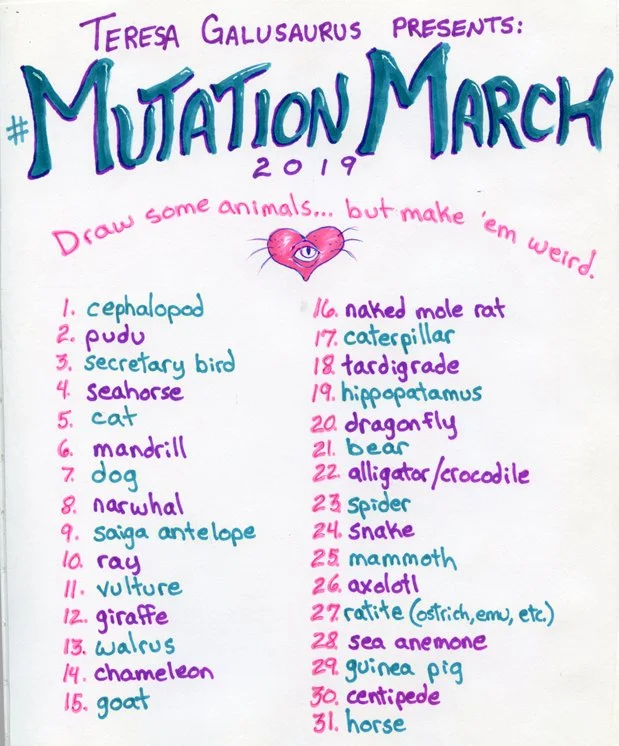 TERESA GALUSAURUS PRESENTS:
#MUTATION MARCH
2019
Draw some animals... but make 'em weird.
1. cephalopod
2. pudu
3. secretary bird
4. seahorse
5. cat
6. mandrill
7. dog
8. narwhal
9. saiga antelope
10. ray
11. vulture
12. giraffe
13. walrus
14. chameleon
15. goat
16. naked mole rat
17. caterpillar
18. tardigrade
19. hippopatamus
20. dragonfly
21. bear
22. alligator/crocodile
23. spider
24. snake
25. mammoth
26. axolotl
27. ratite (ostrich, emu, etc.)
28. sea anemone
29. guinea pig
30. centipede
31. horse